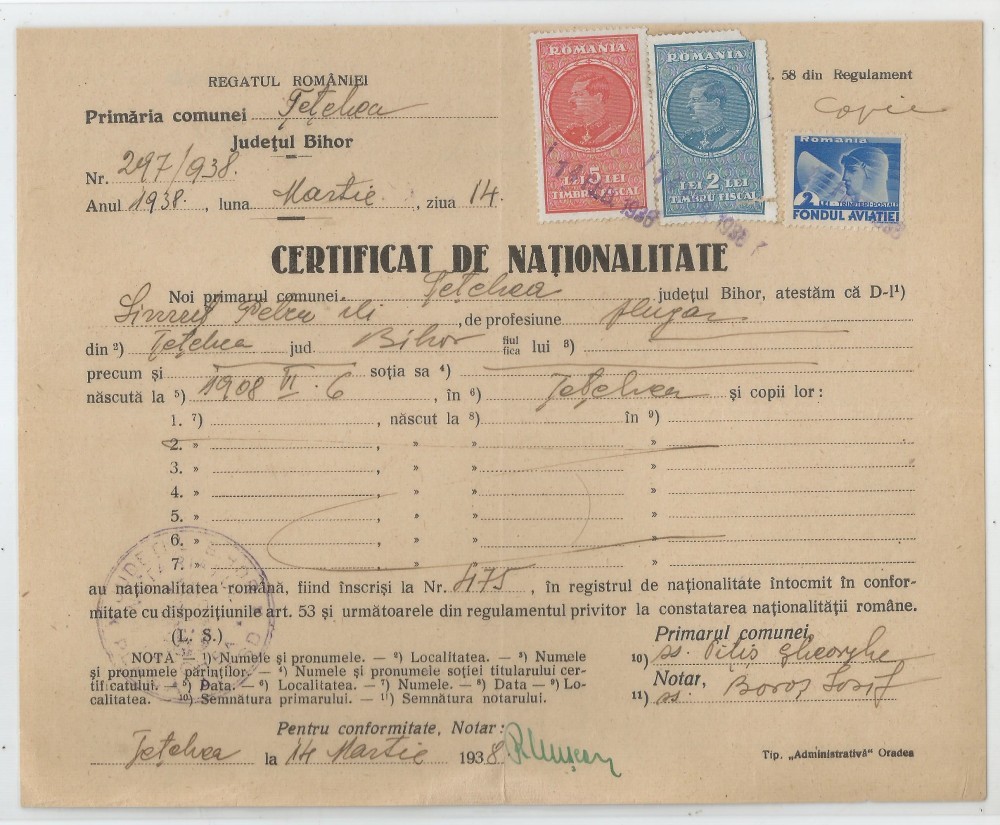 REGATUL ROMÂNIEI
Primăria comunei Țețchea
Județul Bihor
Nr. 297/938.
Anul 1938., luna Martie., ziua 14.
ROMANIA
LEI 5 LEI
TIMBRU FISCAL
ROMANIA
LEI 2 LEI
TIMBRU FISCAL
. 58 din Regulament
Copie
Romania
2 LEI
FONDUL AVIAȚIEI
CERTIFICAT DE NAȚIONALITATE
Noi primarul comunei. Țețchea județul Bihor, atestăm că D-l¹)
Petru, de profesiune Plugar
din ²) Țețchea jud Bihor fiul fica lui ³)
precum și soția sa ⁴)
născută la ⁵) 1908 VI. 6, în ⁶) Țețchea și copii lor :
1. ⁷) , născut la ⁸) în ⁹)
2. » , » »
3. » , » »
4. » , » »
5. » , » »
6. » , » »
7. » , » »
au naționalitatea română, fiind înscriși la Nr. 475, în registrul de naționalitate întocmit în confor-
mitate cu dispozițiunile art. 53 și următoarele din regulamentul privitor la constatarea naționalității române.
(L. S.)
Primarul comunei,
10) ss. Pitiș Gheorghe
Notar,
11) ss. Boroș Iosif
NOTA — ¹) Numele și pronumele. — ²) Localitatea. — ³) Numele
și pronumele părinților. — ⁴) Numele și pronumele soției titularului cer-
tificatului. — ⁵) Data. — ⁶) Localitatea. — ⁷) Numele. — ⁸) Data — ⁹) Lo-
calitatea. ¹⁰) Semnătura primarului. — ¹¹) Semnătura notarului.
Pentru conformitate, Notar :
Țețchea la 14 Martie 1938
Tip. „Administrativă“ Oradea